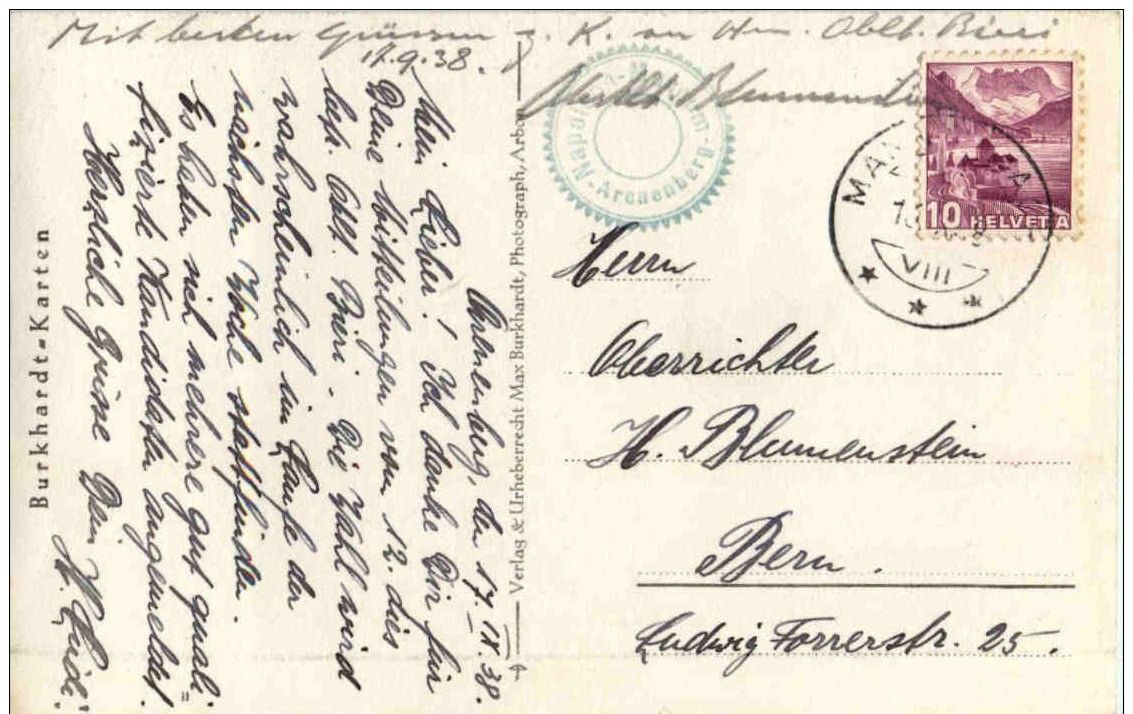 Mit besten Grüssen z. K. an Hrn. Oblt. Bieri
17.9.38.
Oberstlt. Blumenstein
Arenenberg, den 17. IX. 38.
Mein Lieber! Ich danke Dir für
Deine Mitteilungen vom 12. dies
betr. Oblt. Bieri. Die Wahl wird
wahrscheinlich im Laufe der
nächsten Woche stattfinden
Es haben sich mehrere gut quali=
fizierte Kandidaten angemeldet.
Herzliche Grüsse Dein
Burkhardt-Karten
Verlag & Urheberrecht Max Burkhardt, Photograph, Arbon
Arenenberg
10 HELVETIA
VIII
Herrn
Oberrichter
H. Blumenstein
Bern.
Ludwig Forrerstr. 25.